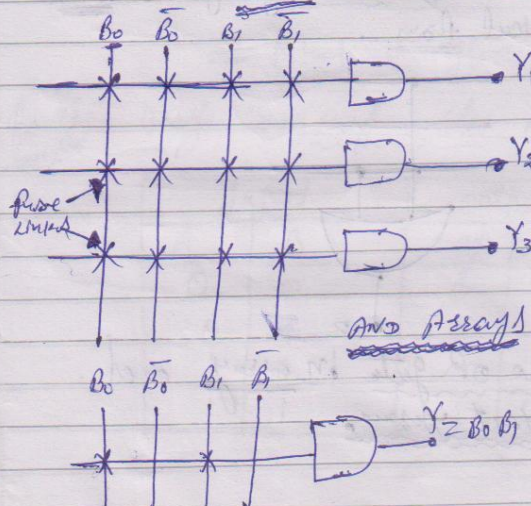 B₀ B̅₀ B₁ B̅₁
Y
Y₂
Fuse
Links
Y₃
AND Arrays
B₀ B̅₀ B₁ B̅₁
Y = B₀ B₁